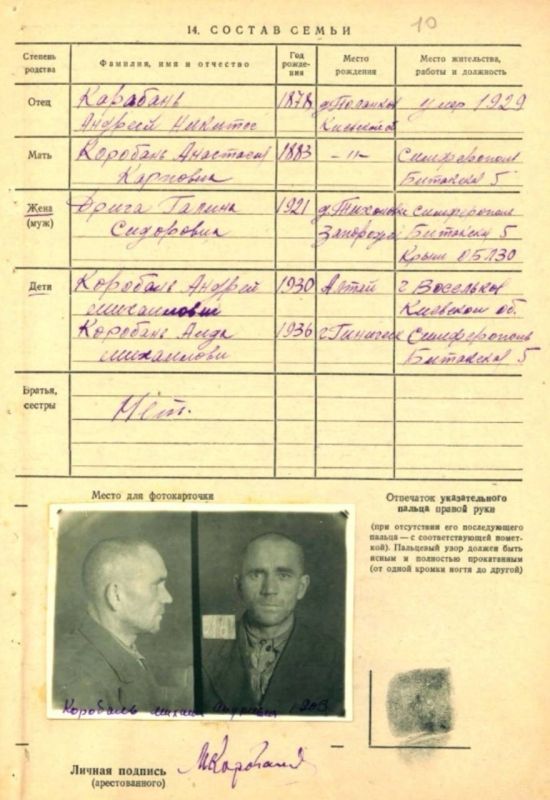 10
14. СОСТАВ СЕМЬИ
Степень родства
Фамилия, имя и отчество
Год рождения
Место рождения
Место жительства, работы и должность
Отец
Карабань
1878
умер 1929
Андрей
Киевской об
Мать
Коробань Анастасия
1883
-"-
Симферополь
Карповна
Битакская 5
Жена
(муж)
Дрига Галина
1921
Симферополь
Сидоровна
Битакская 5
Крым ОБЛЗО
Дети
Коробань Андрей
1930
Алтай
г Васильков
михаилович
Киевской об.
Коробань Аида
1936
Симферополь
михаиловн
Битакская 5
Братья,
сестры
Нет.
Место для фотокарточки
Отпечаток указательного
пальца правой руки
(при отсутствии его последующего
пальца — с соответствующей помет-
кой). Пальцевый узор должен быть
ясным и полностью прокатанным
(от одной кромки ногтя до другой)
Коробань михаил 1903
Личная подпись
(арестованного)
МКоробань